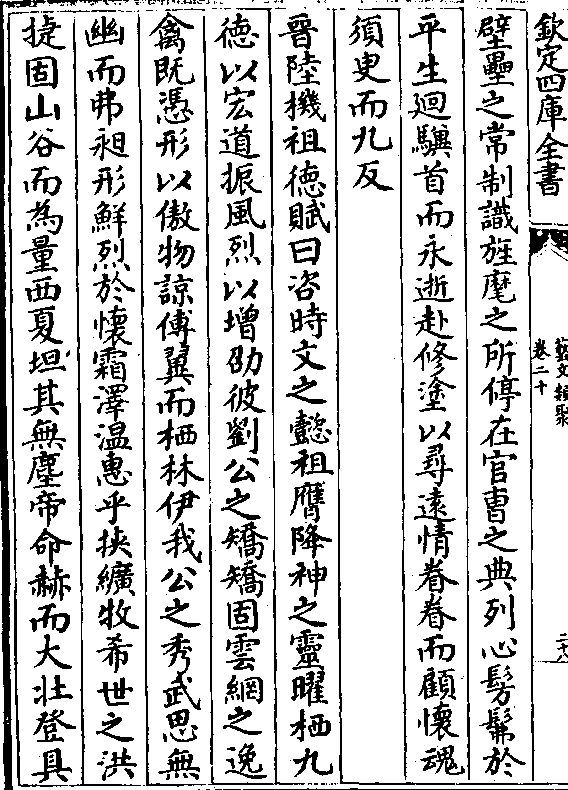 欽定四庫全書
藝文類聚
卷二十
壁壘之常制識旌麾之所停在官曹之典列心髣髴於
平生廻驥首而永逝赴修塗以尋遠情眷眷而顧懷魂
須臾而九反
晉陸機祖德賦曰咨時文之懿祖膺降神之靈曜栖九
德以宏道振風烈以增劭彼劉公之矯矯固雲網之逸
禽既憑形以傲物諒傅翼而栖林伊我公之秀武思無
幽而弗昶形鮮烈於懷霜澤温惠乎挾纊牧希世之洪
捷固山谷而為量西夏坦其無塵帝命赫而大壯登具